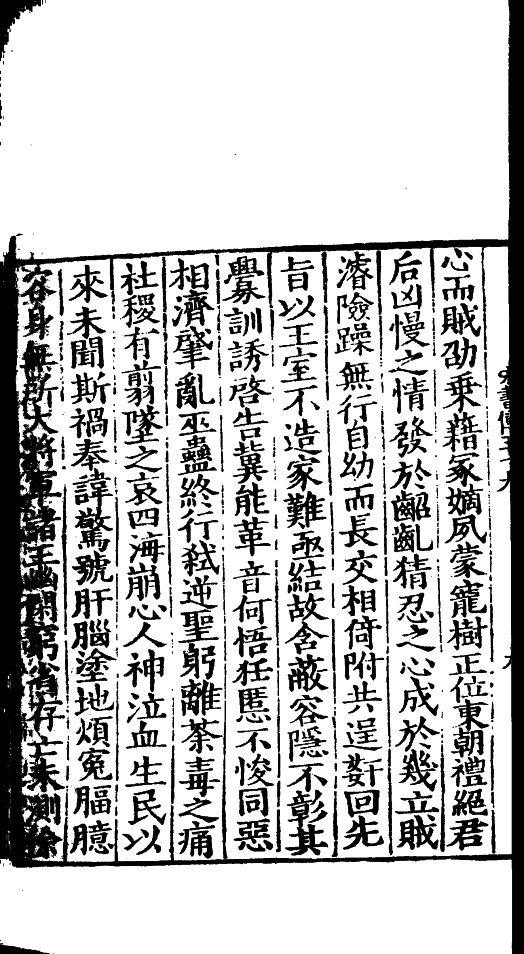 心而賊劭乗藉冢嫡夙蒙寵樹正位東朝禮絕君
后凶慢之情發於齠齓猜忍之心成於幾立賊
濬險躁無行自幼而長交相倚附共逞姧回先
旨以王室不造家難亟結故含蔽容隱不彰其
釁訓誘啓告兾能革音何悟狂慝不悛同惡
相濟肇亂巫蠱終行弒逆聖躬離荼毒之痛
社稷有翦墜之哀四海崩心人神泣血生民以
來未聞斯禍奉諱驚號肝腦塗地煩寃腷臆
容身無所大將軍諸王幽閒窮省存亡未測徐